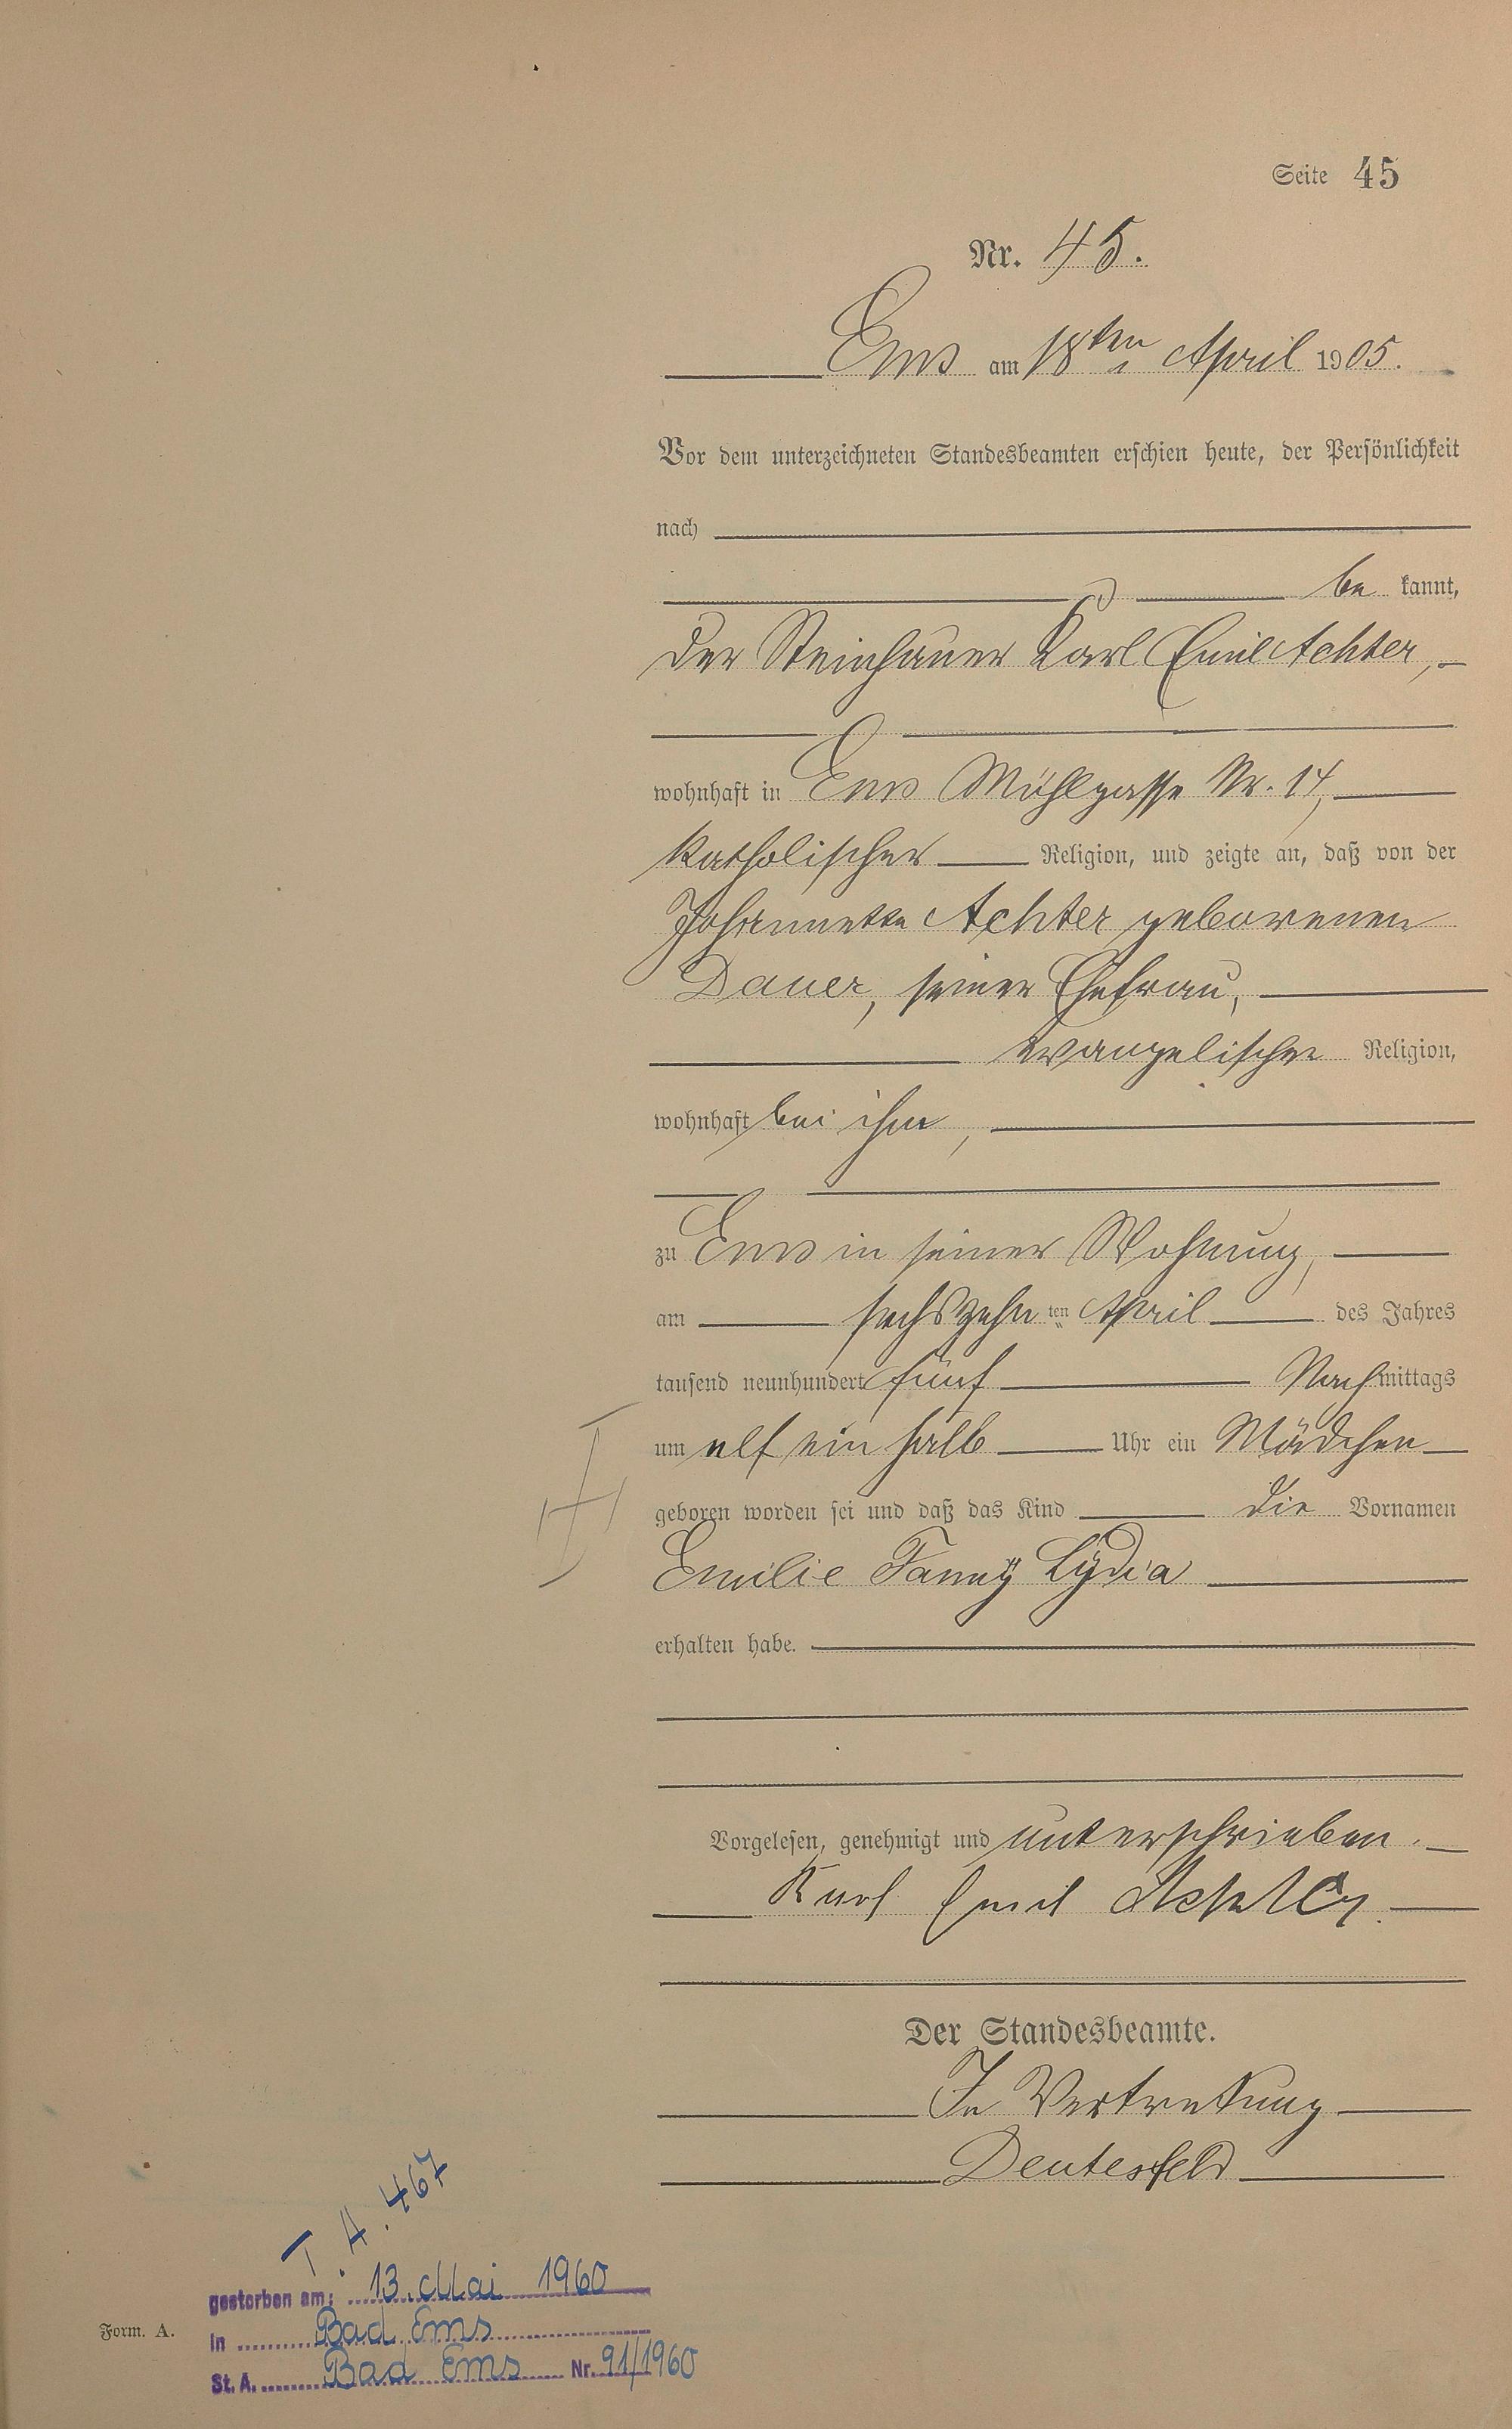 Seite 45
Nr. 45.
Ems am 18ten April 1905.
Vor dem unterzeichneten Standesbeamten erschien heute, der Persönlichkeit
nach
be kannt,
der Steinhauer Karl Emil Achter,
wohnhaft in Ems Mühlgasse Nr. 14,
katholischer Religion, und zeigte an, daß von der
Johannette Achter geborenen
Dauer, seiner Ehefrau,
evangelischer Religion,
wohnhaft bei ihm,
zu Ems in seiner Wohnung,
am sechszehn ten April des Jahres
tausend neunhundert fünf Nachmittags
um elf ein halb Uhr ein Mädchen
geboren worden sei und daß das Kind die Vornamen
Emilie Fanny Lydia
erhalten habe.
Vorgelesen, genehmigt und unterschrieben.
Karl Emil Achter
Der Standesbeamte.
In Vertretung
Deutesfeld
T. A. 467
gestorben am: 13. Mai 1960
Form. A.
in Bad Ems
St. A. Bad Ems Nr. 91/1960